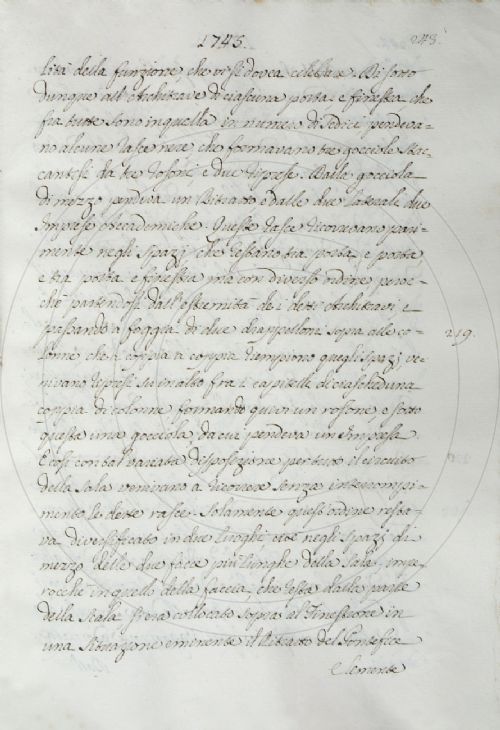 1743.
243.
lità della funzione, che vi si dovea celebrare. Di sotto
dunque all'Architrave di ciascuna porta e finestra che
fra tutte sono in quella in numero di sedici, pendeva-
no alcune rasce nere che formavano tre gocciole stac-
cantesi da tre rosoni, e due riprese. Dalla gocciola
di mezzo pendeva un Ritratto e dalle due laterali due
Imprese Accademiche. Queste rasce ricorrevano pari-
mente negli spazj, che restano tra porta, e porta
e tra porta e finestra ma con diverso ordine, peroc-
chè partendosi dall'estremità de i detti Architravi e
passando a foggia di due drappelloni sopra alle co-
219.
lonne che a coppia a coppia riempiono quegli spazj, ve-
nivano riprese su in alto fra i capitelli di ciascheduna
coppia di colonne formando quivi un rosone, e sotto
questa una gocciola, da cui pendeva un'Impresa.
E così con tal variata disposizione per tutto il circuito
della Sala venivano a ricorrere senza interrompi-
mento le dette rasce. Solamente quest'ordine resta-
va diversificato in due luoghi cioè negli spazj di
mezzo delle due facce più lunghe della Sala, impe-
rocchè in quello della faccia, che resta dalla parte
della Scala s'era collocato sopra al Finestrone in
una situazione eminente il Ritratto del Pontefice
Clemente